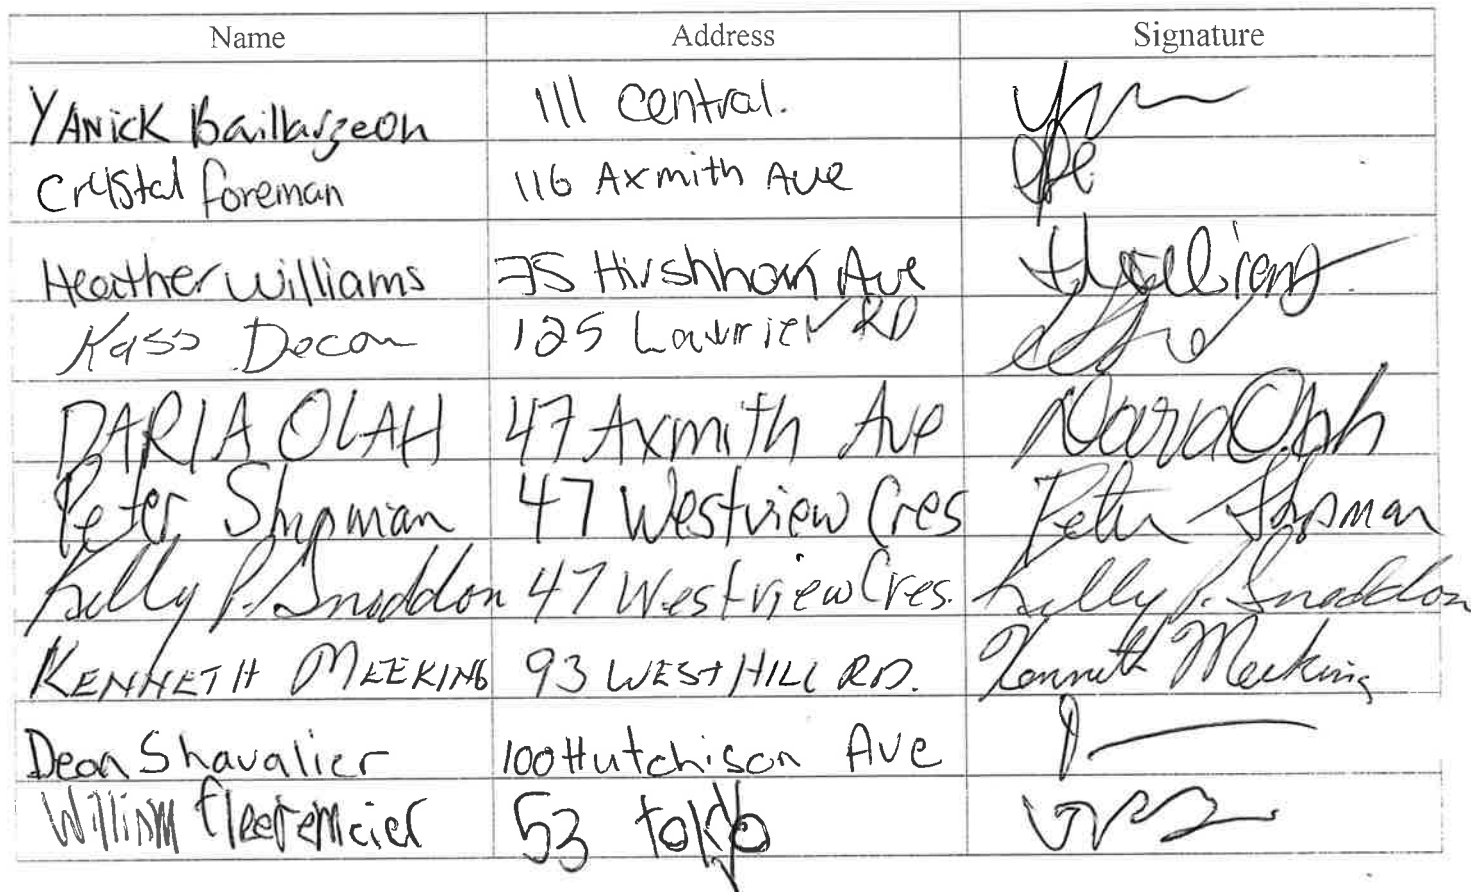 Name Address Signature
YANicK Baillargeon 111 Central.
Crystal foreman 116 Axmith Ave
Heather Williams 35 Hirshhorn Ave HWilliams
Kass Decon 125 Lawrier RD
DARIA OLAH 47 Axmith Ave Daria Olah
Peter Shipman 47 Westview Cres Peter Shipman
Kelly P. Sneddon 47 Westview Cres. Kelly P. Sneddon
KENNETH MEEKING 93 WESTHILL RD. Kenneth Meeking
Dean Shavalier 100 Hutchison Ave
William fleetemeier 53